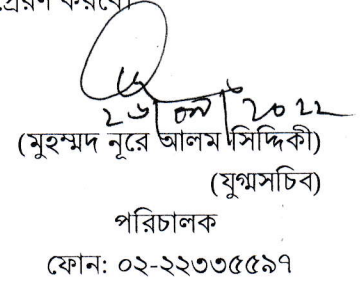 প্রেরণ করবে।
(মুহম্মদ নূরে আলম সিদ্দিকী)
(যুগ্মসচিব)
পরিচালক
ফোন: ০২-২২৩৩৫৫৯৭